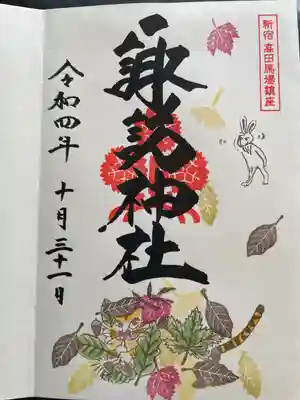 新宿 高田馬場鎮座
諏訪神社
令和四年 十月三十一日